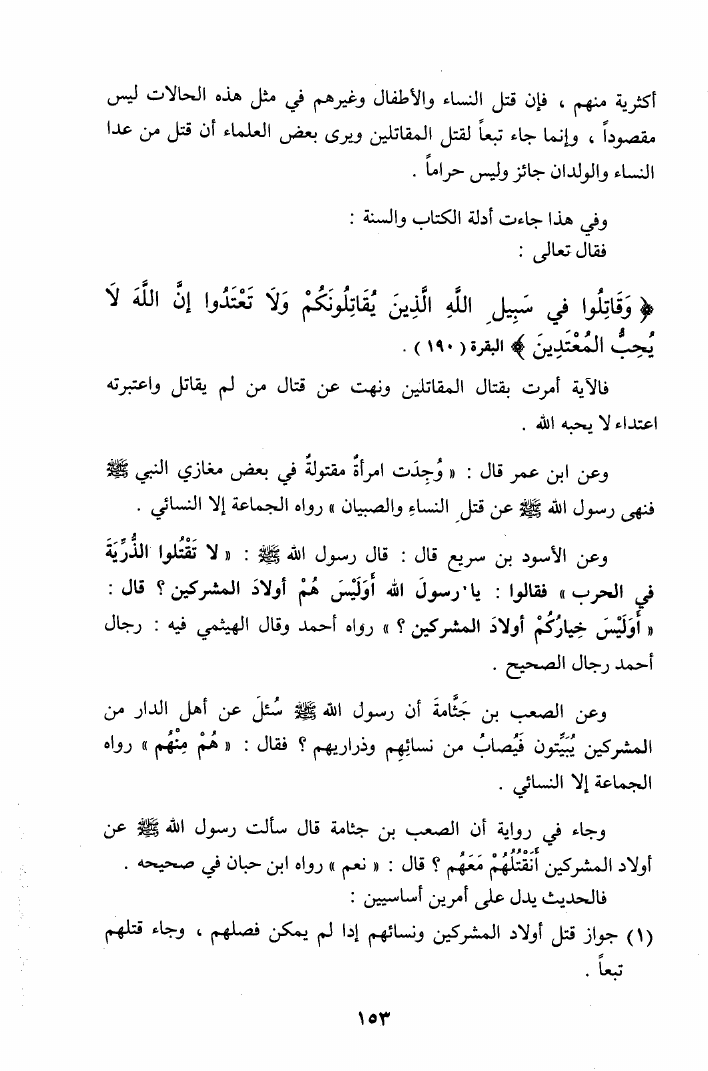 أكثرية منهم ، فإن قتل النساء والأطفال وغيرهم في مثل هذه الحالات ليس
مقصوداً ، وإنما جاء تبعاً لقتل المقاتلين ويرى بعض العلماء أن قتل من عدا
النساء والولدان جائز وليس حراماً .
وفي هذا جاءت أدلة الكتاب والسنة :
فقال تعالى :
﴿ وَقَاتِلُوا في سَبِيلِ اللَّهِ الَّذِينَ يُقَاتِلُونَكُمْ وَلَا تَعْتَدُوا إنَّ اللَّهَ لَا
يُحِبُّ المُعْتَدِينَ ﴾ البقرة ( ١٩٠ ) .
فالآية أمرت بقتال المقاتلين ونهت عن قتال من لم يقاتل واعتبرته
اعتداء لا يحبه الله .
وعن ابن عمر قال : « وُجِدَت امرأةٌ مقتولةٌ في بعض مغازي النبي ﷺ
فنهى رسول الله ﷺ عن قتلِ النساءِ والصبيان » رواه الجماعة إلا النسائي .
وعن الأسود بن سريع قال : قال رسول الله ﷺ : « لا تَقْتُلوا الذُّرِّيَةَ
في الحرب » فقالوا : يا رسولَ الله أَوَلَيْسَ هُمْ أولادَ المشركين ؟ قال :
« أَوَلَيْسَ خِيارُكُمْ أولادَ المشركين ؟ » رواه أحمد وقال الهيثمي فيه : رجال
أحمد رجال الصحيح .
وعن الصعب بن جَثَّامةَ أن رسول الله ﷺ سُئلَ عن أهل الدار من
المشركين يُبَيِّتون فَيُصابُ من نسائِهِم وذراريهم ؟ فقال : « هُمْ مِنْهُم » رواه
الجماعة إلا النسائي .
وجاء في رواية أن الصعب بن جثامة قال سألت رسول الله ﷺ عن
أولاد المشركين أَنَقْتُلُهُمْ مَعَهُم ؟ قال : « نعم » رواه ابن حبان في صحيحه .
فالحديث يدل على أمرين أساسيين :
(١) جواز قتل أولاد المشركين ونسائهم إدا لم يمكن فصلهم ، وجاء قتلهم
تبعاً .
١٥٣